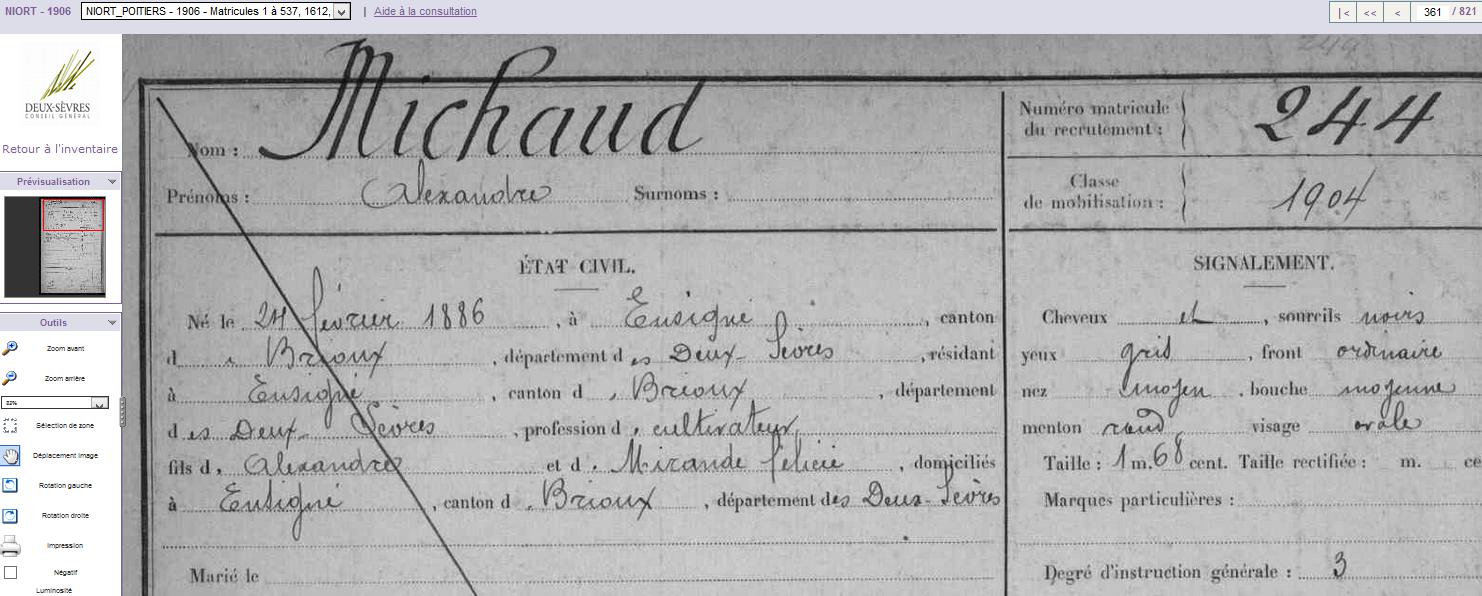 NIORT - 1906 NIORT_POITIERS - 1906 - Matricules 1 à 537, 1612, | Aide à la consultation |< << < 361 / 821
249
DEUX-SÈVRES
CONSEIL GÉNÉRAL
Retour à l'inventaire
Prévisualisation
Outils
Zoom avant
Zoom arrière
Sélection de zone
Déplacement image
Rotation gauche
Rotation droite
Impression
Négatif
Luminosité
Nom : Michaud
Prénoms : Alexandre Surnoms :
Numéro matricule
du recrutement : 244
Classe
de mobilisation : 1904
ÉTAT CIVIL.
Né le 24 février 1886, à Ensigné, canton
d Brioux, département des Deux-Sèvres, résidant
à Ensigné, canton d Brioux, département
des Deux-Sèvres, profession d cultivateur
fils d Alexandre et d Mirande félicie, domiciliés
à Ensigné, canton d Brioux, département des Deux-Sèvres
Marié le
SIGNALEMENT.
Cheveux et, sourcils noirs
yeux gris, front ordinaire
nez moyen, bouche moyenne
menton rond visage ovale
Taille : 1 m. 68 cent. Taille rectifiée : m. ce
Marques particulières :
Degré d'instruction générale : 3